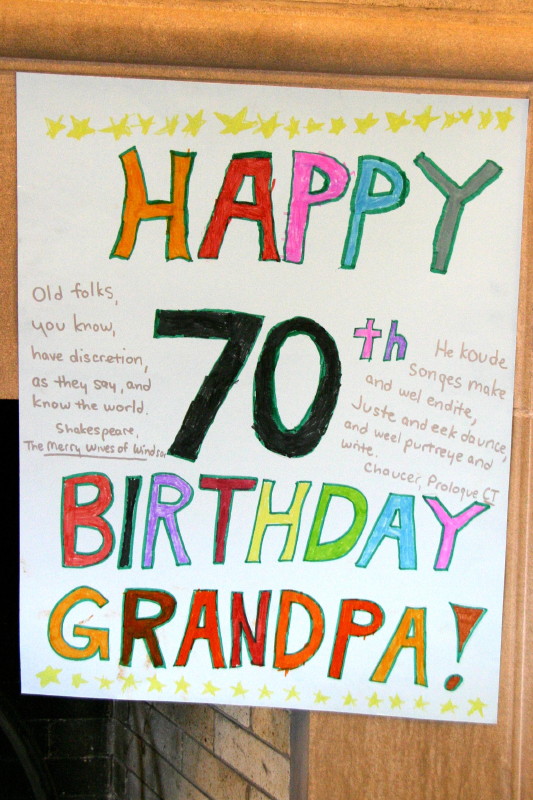 HAPPY
70th
Old folks,
you know,
have discretion,
as they say, and
know the world.
Shakespeare,
The Merry Wives of Windsor
He koude
songes make
and wel endite,
Juste and eek daunce,
and weel purtreye and
write.
Chaucer, Prologue CT
BIRTHDAY
GRANDPA!